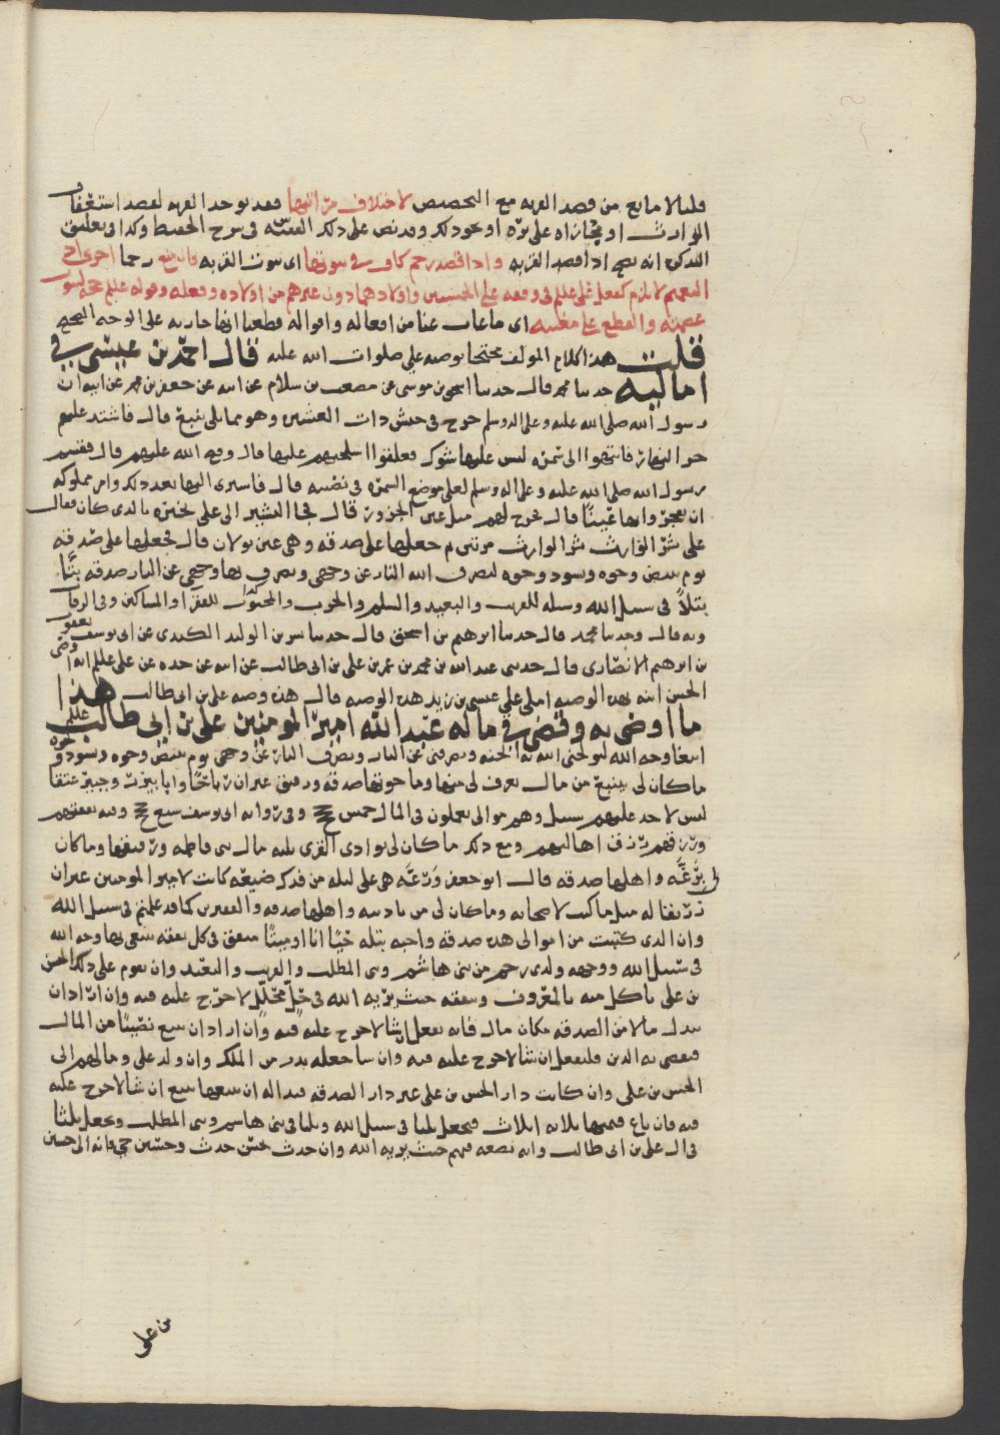 قلنا لا مانع من قصد القربه مع التخصيص لاختلاف مراتبها فقد توجد القربه لقصد استغفار
الوارث او مجازاه على بره او نحو ذلك وقد نص على ذلك الفقيه في شرح الحفيظ وكذا في تعليق
التذكره انه يصح اذا قصد القربه واذا قصد رحم كاف في ثبوتها اى ثبوت القربه
التعميم لا يلزم كفعل علي عليلم في وقفه على الحسنين واولادهما دون غيرهم من اولاده وفعله وقوله عليلم حجه لثبوت
عصمته والقطع على مغيبه اى ما غاب عنا من افعاله واقواله قطعنا انها جاريه على الوجه الصحيح
قلت هذا كلام المولف محتجا بوصيه علي صلوات الله عليه قال احمد بن عيسى في
اماليه حدثنا محمد قال حدثنا اسحق بن موسى عن مصعب بن سلام عن ابيه عن جعفر بن محمد عن ابيه ان
رسول الله صلى الله عليه وعلى اله وسلم خرج في جيش ذات العشيره وهو مما يلى ينبع قال فاشتد عليهم
حر النهار فانتهوا الى سمره ليس عليها شوك فعلقوا اسلحتهم عليها قال وفتح الله عليهم قال فقسم
رسول الله صلى الله عليه وعلى اله وسلم لعلي موضع السمره في نصيبه قال فاشترى اليها بعد ذلك وامر مملوكيه
ان يفجروا لها عينًا قال فخرج لهم مثل عين الجزور قال فجا البشير الى علي يخبره بالذى كان فقال
علي بشر الوارث بشر الوارث مرتين ثم جعلها على صدقه وهي عين بولان قال فجعلها علي صدقه
يوم تبيض وجوه وتسود وجوه ليصرف الله النار عن وجهى ويصرف بها وجهى عن النار صدقه بتًّا
بتلاً في سبيل الله وسبله للقريب والبعيد والسلم والحرب والفقرا والمساكين وفي الرقاب
وبه قال وحدثنا محمد قال حدثنا ابرهيم بن اسحق قال حدثنا بشر بن الوليد الكندى عن ابى يوسف يعقوب
بن ابرهيم الانصارى قال حدثنى عبدالله بن محمد بن عمر بن علي بن ابى طالب عن ابيه عن جده عن علي عليلم انه اوصى
الحسن ابنه بهذه الوصيه املى علي عيسى بن زيد هذه الوصيه قال هذه وصيه علي بن ابى طالب هذا
ما اوصى به وقضى في ماله عبد الله امير المومنين علي بن ابى طالب عليلم
ابتغا وجه الله ليولجنى الله به الجنه ويصرفنى عن النار ويصرف النار عن وجهى يوم تبيض وجوه وتسود وجوه
ما كان لى بينبع من مال يعرف لى منها وما حولها صدقه ورقيق غير ان رباحًا وابا نيزر وجبير عتقا
ليس لاحد عليهم سبيل وهم موالى يعملون في المال خمس حجج وفي روايه ابى يوسف سبع حجج وفيه نفقتهم
ورزقهم ورزق اهاليهم ومع ذلك ما كان لى بوادى القرى ثلثه مال بنى فاطمه ورقيقها وما كان
لى برعه واهلها صدقه قال ابو جعفر ورعه هى على ليله من فدك ضيعه كانت لامير المومنين غير ان
زريقا له مثل ما كتب لاصحابه وما كان لى من واهلها صدقه والفقيرين كما قد علمتم في سبيل الله
وان الذى كتبت من اموالى هذه صدقه واجبه بتله حيًّا انا او ميتًا ينفق في كل نفقه يبتغى بها وجه الله
في سبيل الله ووجهه وذوى رحم من بنى هاشم وبنى المطلب والقريب والبعيد وان يقوم على ذلك الحسن
بن علي ياكل منه بالمعروف وينفقه حيث يريه الله في حل محلل لا حرج عليه فيه وان اراد ان
يبدل مالا من الصدقه مكان مال فانه يفعل ان شا لا حرج عليه فيه وان اراد ان يبيع نصيبًا من المال
فيقضى به الدين فليفعل ان شا لا حرج عليه فيه وان شا جعله من الملك وان ولد علي ومالهم الى
الحسن بن علي وان كانت دار الحسن بن علي غير دار الصدقه فبدا له ان يبيعها يبيع ان شا لا حرج عليه
فيه فان باع فثمنها ثلاثه اثلاث فيجعل ثلثا في سبيل الله وثلثا في بنى هاشم وبنى المطلب ويجعل ثلثا
في ال علي بن ابى طالب وانه يضعه فيهم حيث يريه الله وان حدث بحسن حدث وحسين حي فانه الى حسين
بن علي